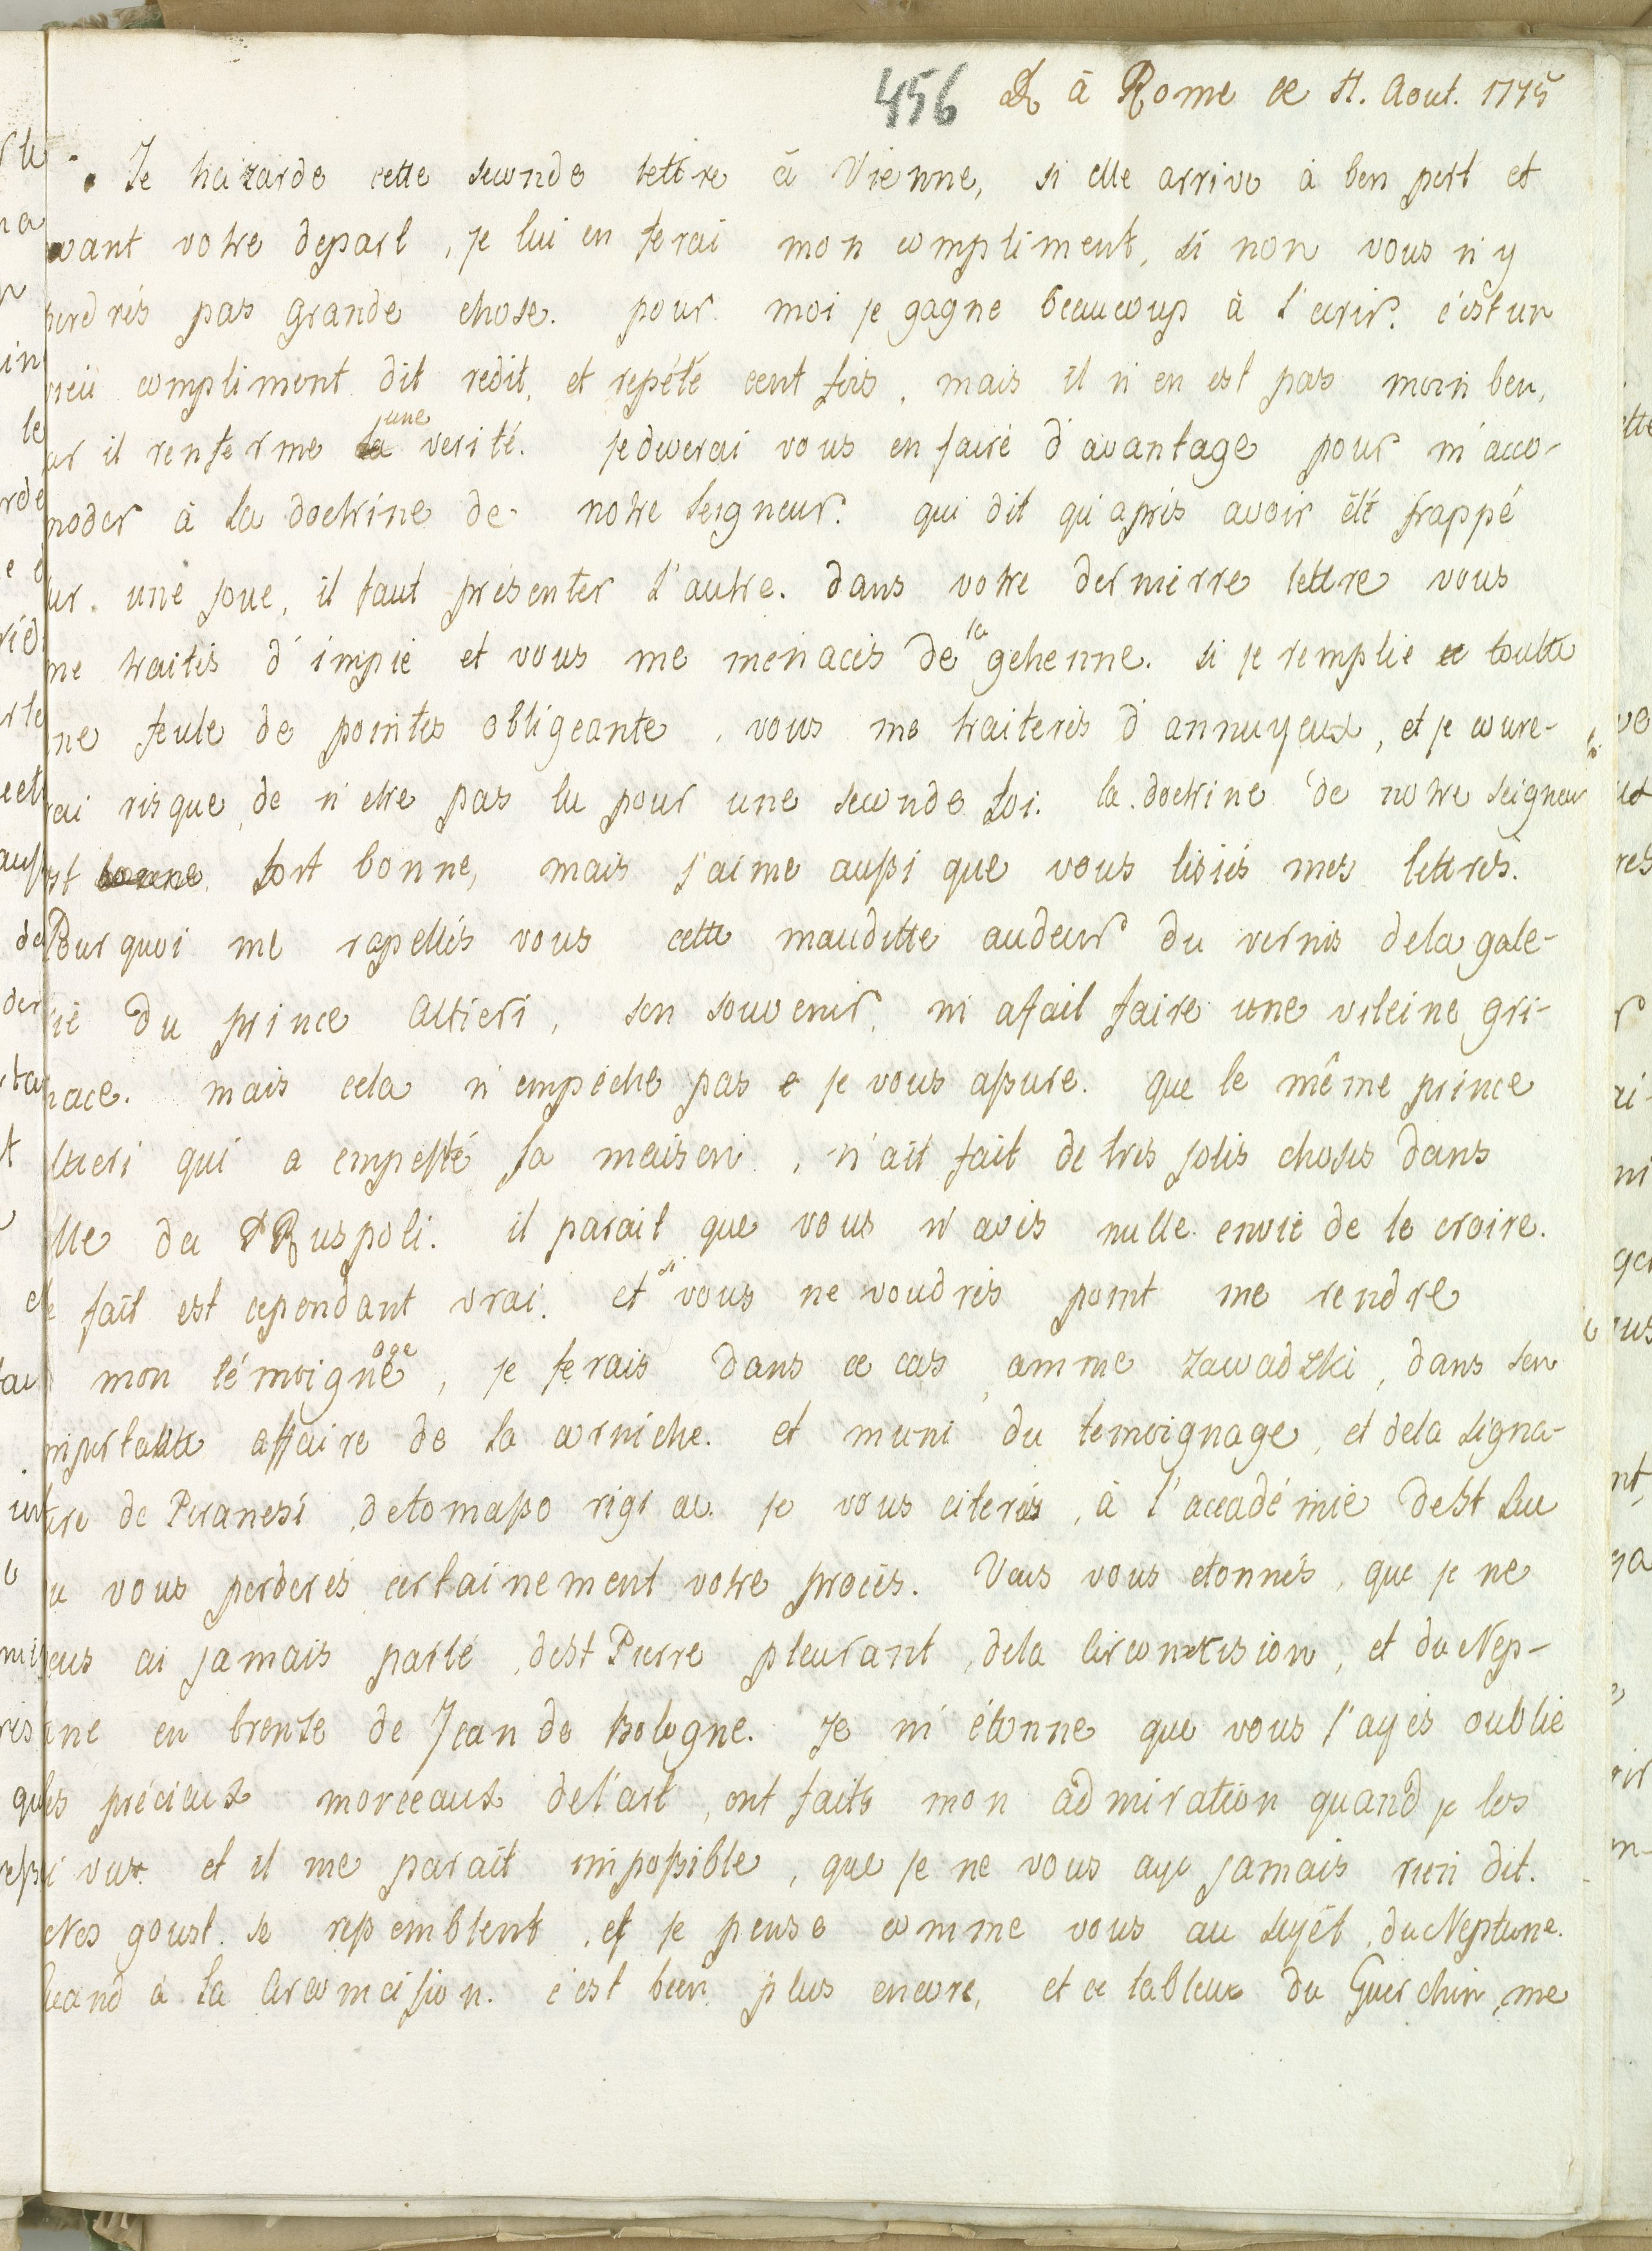 456 R à Rome ce 11. Aout. 1775
Je hazarde cette seconde lettre à Vienne, si elle arrive à bon port et
avant votre depart, je lui en ferai mon compliment, si non vous n'y
perdrés pas grande chose. pour moi je gagne beaucoup à l'ecrir. c'est un
vieu compliment dit redit, et repété cent fois, mais il n'en est pas moin bon,
car il renferme une verité. je dwerai vous en faire d'avantage pour m'acco-
moder à la doctrine de notre seigneur. qui dit qu'apris avoir été frappé
sur une joue, il faut presenter l'autre. dans votre dernierre lettre vous
me traités d'impie et vous me menacés de la gehenne. si je remplie toutte
une feule de pointes obligeante, vous me traiterés d'annuyeux, et je coure-
rai risque de n'etre pas lu pour une seconde foi. la doctrine de notre seigneur
est bonne fort bonne, mais j'aime aussi que vous lisiés mes lettres.
Pourquoi me rapellés vous cette mauditte audeur du vernis dela gale-
rie du prince Altieri, son souvenir m'a fait faire une vileine gri-
mace. mais cela n'empeche pas je vous assure. que le même prince
Altieri qui a empesté sa maison, n'ait fait de tres jolis choses dans
elle du Ruspoli. il parait que vous n'avés nulle envie de le croire.
le fait est cependant vrai. et si vous ne voudrés point me rendre
mon témoignage, je ferais dans ce cas comme Zawadzki, dans son
importante affaire de la corniche. et muni du temoignage, et dela signa-
ture de Piranesi, de tomaso rigi a. je vous citerés, à l'accadémie de St Lu
vous perderés certainement votre procés. Vous vous etonnés, que je ne
vous ai jamais parlé, de St Pierre pleurant, dela circoncision, et du Nep-
tune en bronze de Jean de Bologne. Je m'étonne que vous l'ayés oublié
ces précieux morceaux de l'art, ont faits mon admiration quand je les
ai vus. et il me parait impossible, que je ne vous aye jamais rien dit.
Nos goust se ressemblent, et je pense comme vous au sujét du Neptune.
Quand à la circoncision. c'est bien plus encore, et ce tableux du Guerchin, me